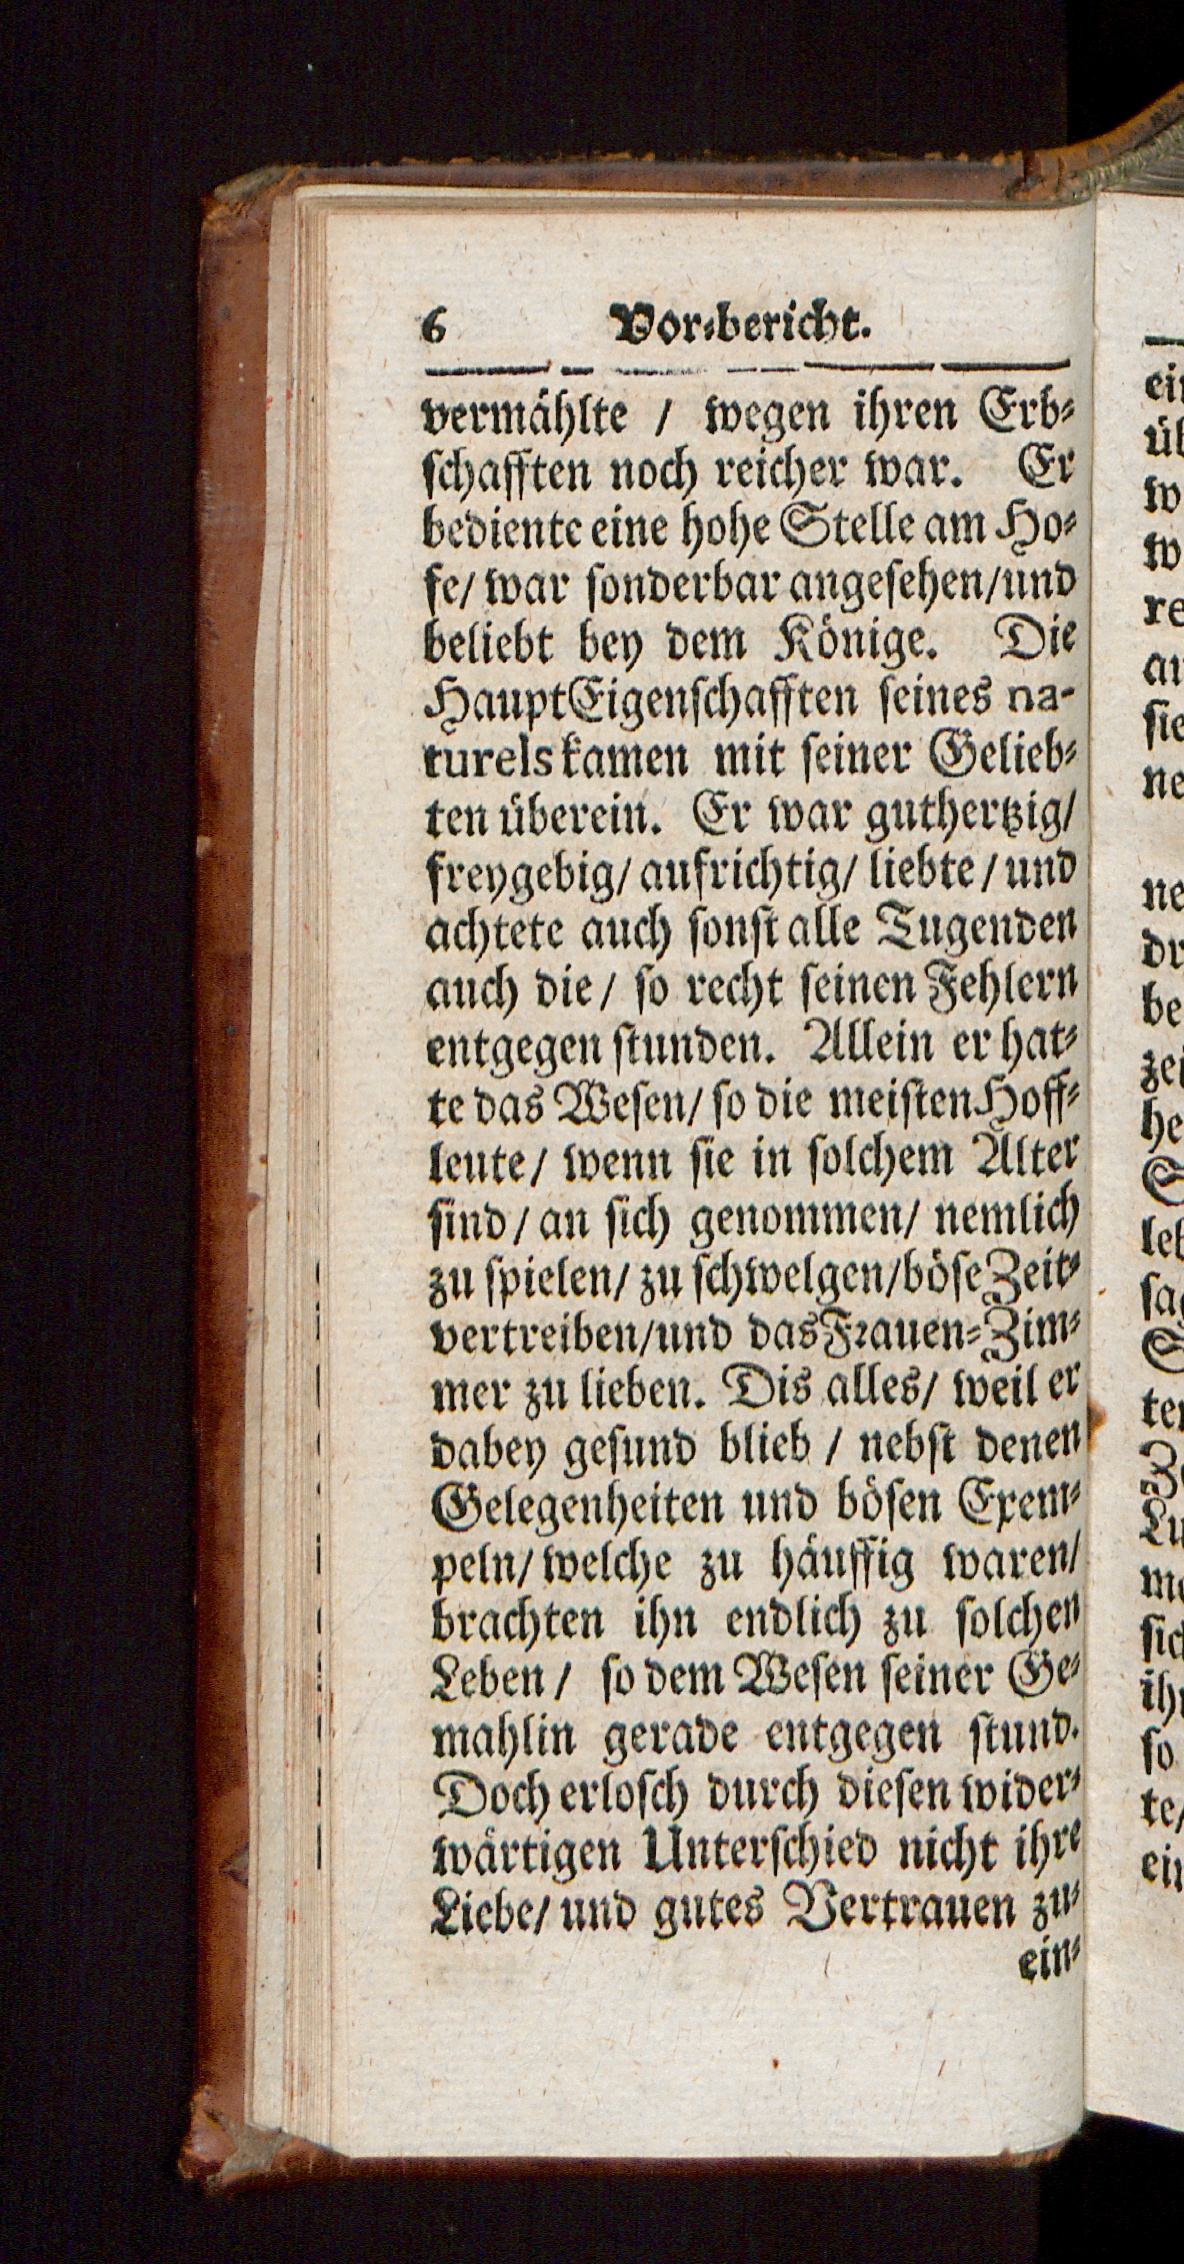 6 Vor⸗bericht.
vermählte / wegen ihren Erb⸗
ſchafften noch reicher war. Er
bediente eine hohe Stelle am Ho⸗
fe/ war ſonderbar angeſehen/und
beliebt bey dem Könige. Die
HauptEigenſchafften ſeines na-
turels kamen mit ſeiner Gelieb⸗
ten überein. Er war guthertzig/
freygebig/ aufrichtig/ liebte / und
achtete auch ſonſt alle Tugenden
auch die / ſo recht ſeinen Fehlern
entgegen ſtunden. Allein er hat⸗
te das Weſen/ ſo die meiſten Hoff⸗
leute / wenn ſie in ſolchem Alter
ſind / an ſich genommen/ nemlich
zu ſpielen/ zu ſchwelgen/böſe Zeit⸗
vertreiben/und das Frauen⸗Zim⸗
mer zu lieben. Dis alles/ weil er
dabey geſund blieb / nebſt denen
Gelegenheiten und böſen Exem⸗
peln/ welche zu häuffig waren/
brachten ihn endlich zu ſolchen
Leben / ſo dem Weſen ſeiner Ge⸗
mahlin gerade entgegen ſtund.
Doch erloſch durch dieſen wider⸗
wärtigen Unterſchied nicht ihre
Liebe/ und gutes Vertrauen zu⸗
ein⸗